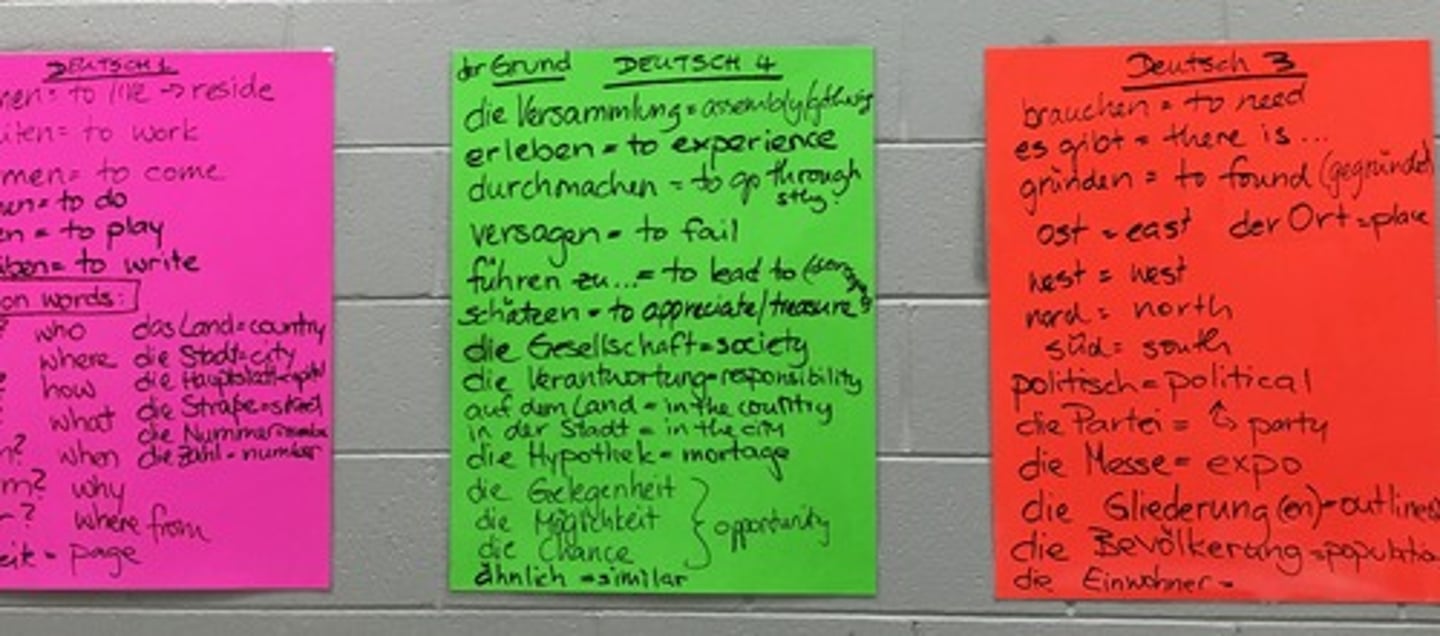 DEUTSCH 1
men= to live → reside
iten= to work
men= to come
en= to do
en = to play
iben= to write
on words:
? who das Land=country
where die Stadt=city
how die Hauptstadt=capital
what die Straße=street
die Nummer=number
n? when die Zahl = number
m? why
r? where from
eit = page
der Grund DEUTSCH 4
die Versammlung = assembly/
erleben = to experience
durchmachen = to go through
sthg.
versagen = to fail
führen zu...= to lead to
schätzen = to appreciate/treasure
die Gesellschaft=society
die Verantwortung=responsibility
auf dem Land = in the country
in der Stadt = in the city
die Hypothek = mortage
die Gelegenheit
die Möglichkeit } opportunity
die Chance
ähnlich = similar
Deutsch 3
brauchen = to need
es gibt = there is...
gründen = to found (gegründet
ost = east der Ort = place
west = west
nord = north
süd = south
politisch = political
die Partei = party
die Messe = expo
die Gliederung(en)=outline
die Bevölkerung =populatio
die Einwohner =